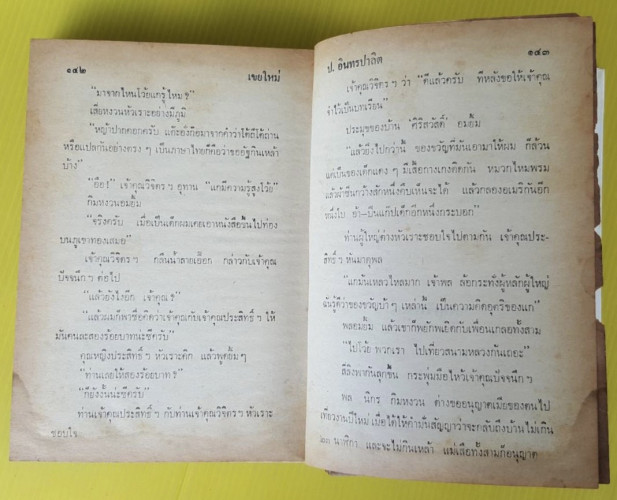 ๑๔๒
เขยใหม่
"มาจากไหนโว้ยแกรู้ไหม?"
เสี่ยหงวนหัวเราะอย่างมีภูมิ
"หญ้าปากคอกครับ
หรือแปลกันอย่างตรง ๆ เป็นภาษาไทยก็คือว่าขออัฐกินเหล้า
บ้าง"
"อือ!" เจ้าคุณวิจิตร ฯ อุทาน "แกมีความรู้สูงโว้ย"
กิมหงวนอมยิ้ม
"จริงครับ เมื่อเป็นเด็กผมเคยเอาหนังสือขึ้นไปท่อง
บนภูเขาทองเสมอ"
เจ้าคุณวิจิตร ฯ กลืนน้ำลายเอื๊อก กล่าวกับเจ้าคุณ
ปัจจนึก ฯ ต่อไป
"แล้วยังไงอีก เจ้าคุณ?"
"แล้วผมก็พาซื่อคิดว่าเจ้าคุณกับเจ้าคุณประสิทธิ์ ฯ ให้
มันคนละสองร้อยบาทน่ะซีครับ"
คุณหญิงประสิทธิ์ ฯ หัวเราะคิก แล้วพูดยิ้ม ๆ
"ท่านเลยให้สองร้อยบาท?"
"ก็ยังงั้นน่ะซีครับ"
ท่านเจ้าคุณประสิทธิ์ ฯ กับท่านเจ้าคุณวิจิตร ฯ หัวเราะ
ชอบใจ
ป. อินทรปาลิต
๑๔๓
เจ้าคุณวิจิตร ฯ ว่า "ดีแล้วครับ ทีหลังขอให้เจ้าคุณ
จำไว้เป็นบทเรียน"
ประมุขของบ้าน "ศิริสวัสดิ์" อมยิ้ม
"แล้วยิ่งไปกว่านี้ ของขวัญที่มันเอามาให้ผม ก็ล้วน
แต่เป็นของเด็กแดง ๆ มีเสื้อกางเกงติดกัน หมวกไหมพรม
แล้วผ้าซิ่นกว้างสักหนึ่งคืบเห็นจะได้ แล้วกลองอเมริกันอีก
หนึ่งใบ อ้า-ปืนแก๊ปเด็กอีกหนึ่งกระบอก"
ท่านผู้ใหญ่ต่างหัวเราะชอบใจไปตามกัน เจ้าคุณประ-
สิทธิ์ ฯ หันมาดุพล
"แกมันเหลวไหลมาก เจ้าพล ล้อกระทั่งผู้หลักผู้ใหญ่
ฉันรู้ดีว่าของขวัญบ้า ๆ เหล่านี้ เป็นความคิดอุตริของแก"
พลอมยิ้ม แล้วเขาก็พยักพเยิดกับเพื่อนเกลอทั้งสาม
"ไปโว้ย พวกเรา ไปเที่ยวสนามหลวงกันเถอะ"
สี่สิงพากันลุกขึ้น กระพุ่มมือไหว้เจ้าคุณปัจจนึก ฯ
พล นิกร กิมหงวน ต่างขออนุญาตเมียของตนไป
เที่ยวงานปีใหม่ เมื่อได้ให้คำมั่นสัญญาว่าจะกลับถึงบ้านไม่เกิน
๒๓ นาฬิกา และจะไม่กินเหล้า แม่เสือทั้งสามก็อนุญาต